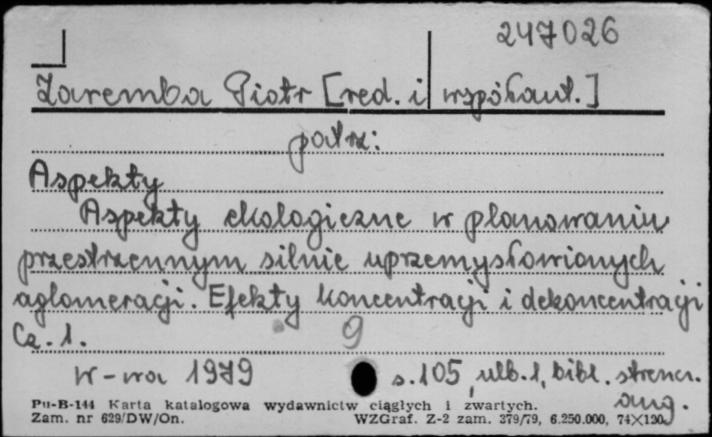 247026
Zaremba Piotr [red. i współaut.]
patrz:
Aspekty
Aspekty ekologiczne w planowaniu
przestrzennym silnie uprzemysłowionych
aglomeracji. Efekty koncentracji i dekoncentracji
Cz. 1. 9
W-wa 1979 s. 105, ulb. 1, bibl. streszcz.
ang.
Pu-B-144 Karta katalogowa wydawnictw ciągłych i zwartych.
Zam. nr 629/DW/On. WZGraf. Z-2 zam. 379/79, 6.250.000, 74X120